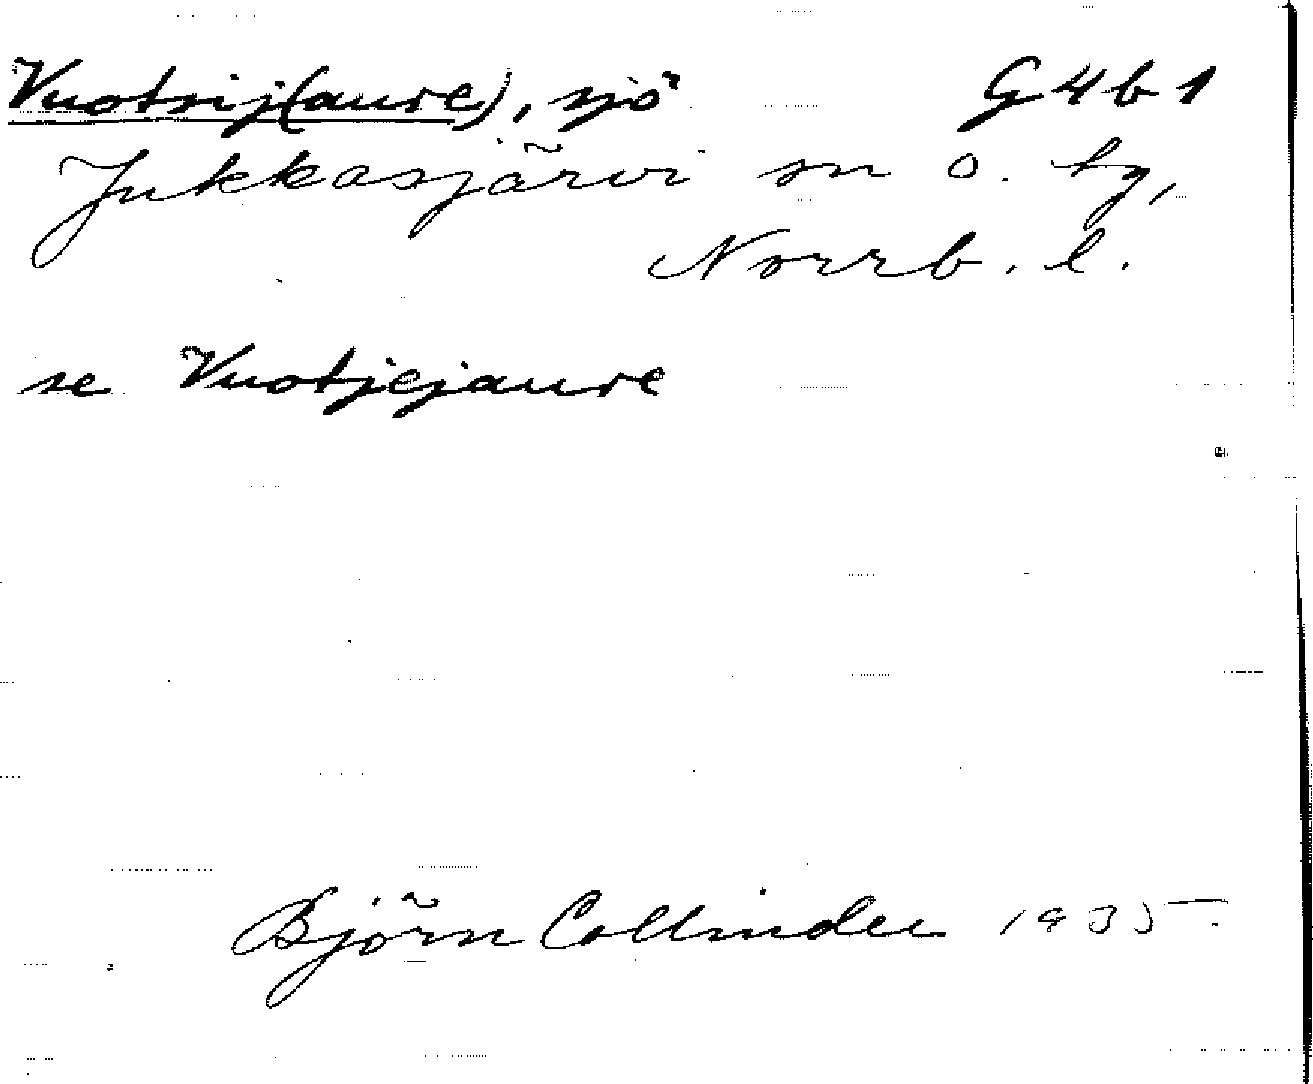 Vuotsij(aure), sjö G 4 b 1
Jukkasjärvi sn o. tg,
Norrb. l.
se Vuotjejaure
Björn Collinder 1935.